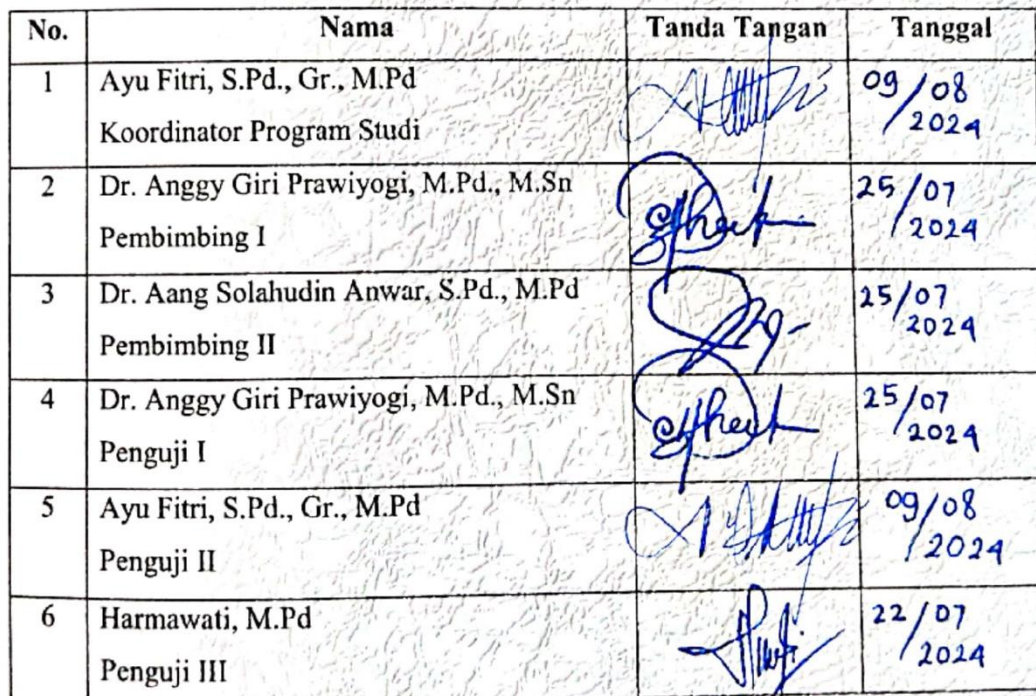 No. Nama Tanda Tangan Tanggal
1 Ayu Fitri, S.Pd., Gr., M.Pd 09/08
Koordinator Program Studi 2024
2 Dr. Anggy Giri Prawiyogi, M.Pd., M.Sn 25/07
Pembimbing I 2024
3 Dr. Aang Solahudin Anwar, S.Pd., M.Pd 25/07
Pembimbing II 2024
4 Dr. Anggy Giri Prawiyogi, M.Pd., M.Sn 25/07
Penguji I 2024
5 Ayu Fitri, S.Pd., Gr., M.Pd 09/08
Penguji II 2024
6 Harmawati, M.Pd 22/07
Penguji III 2024